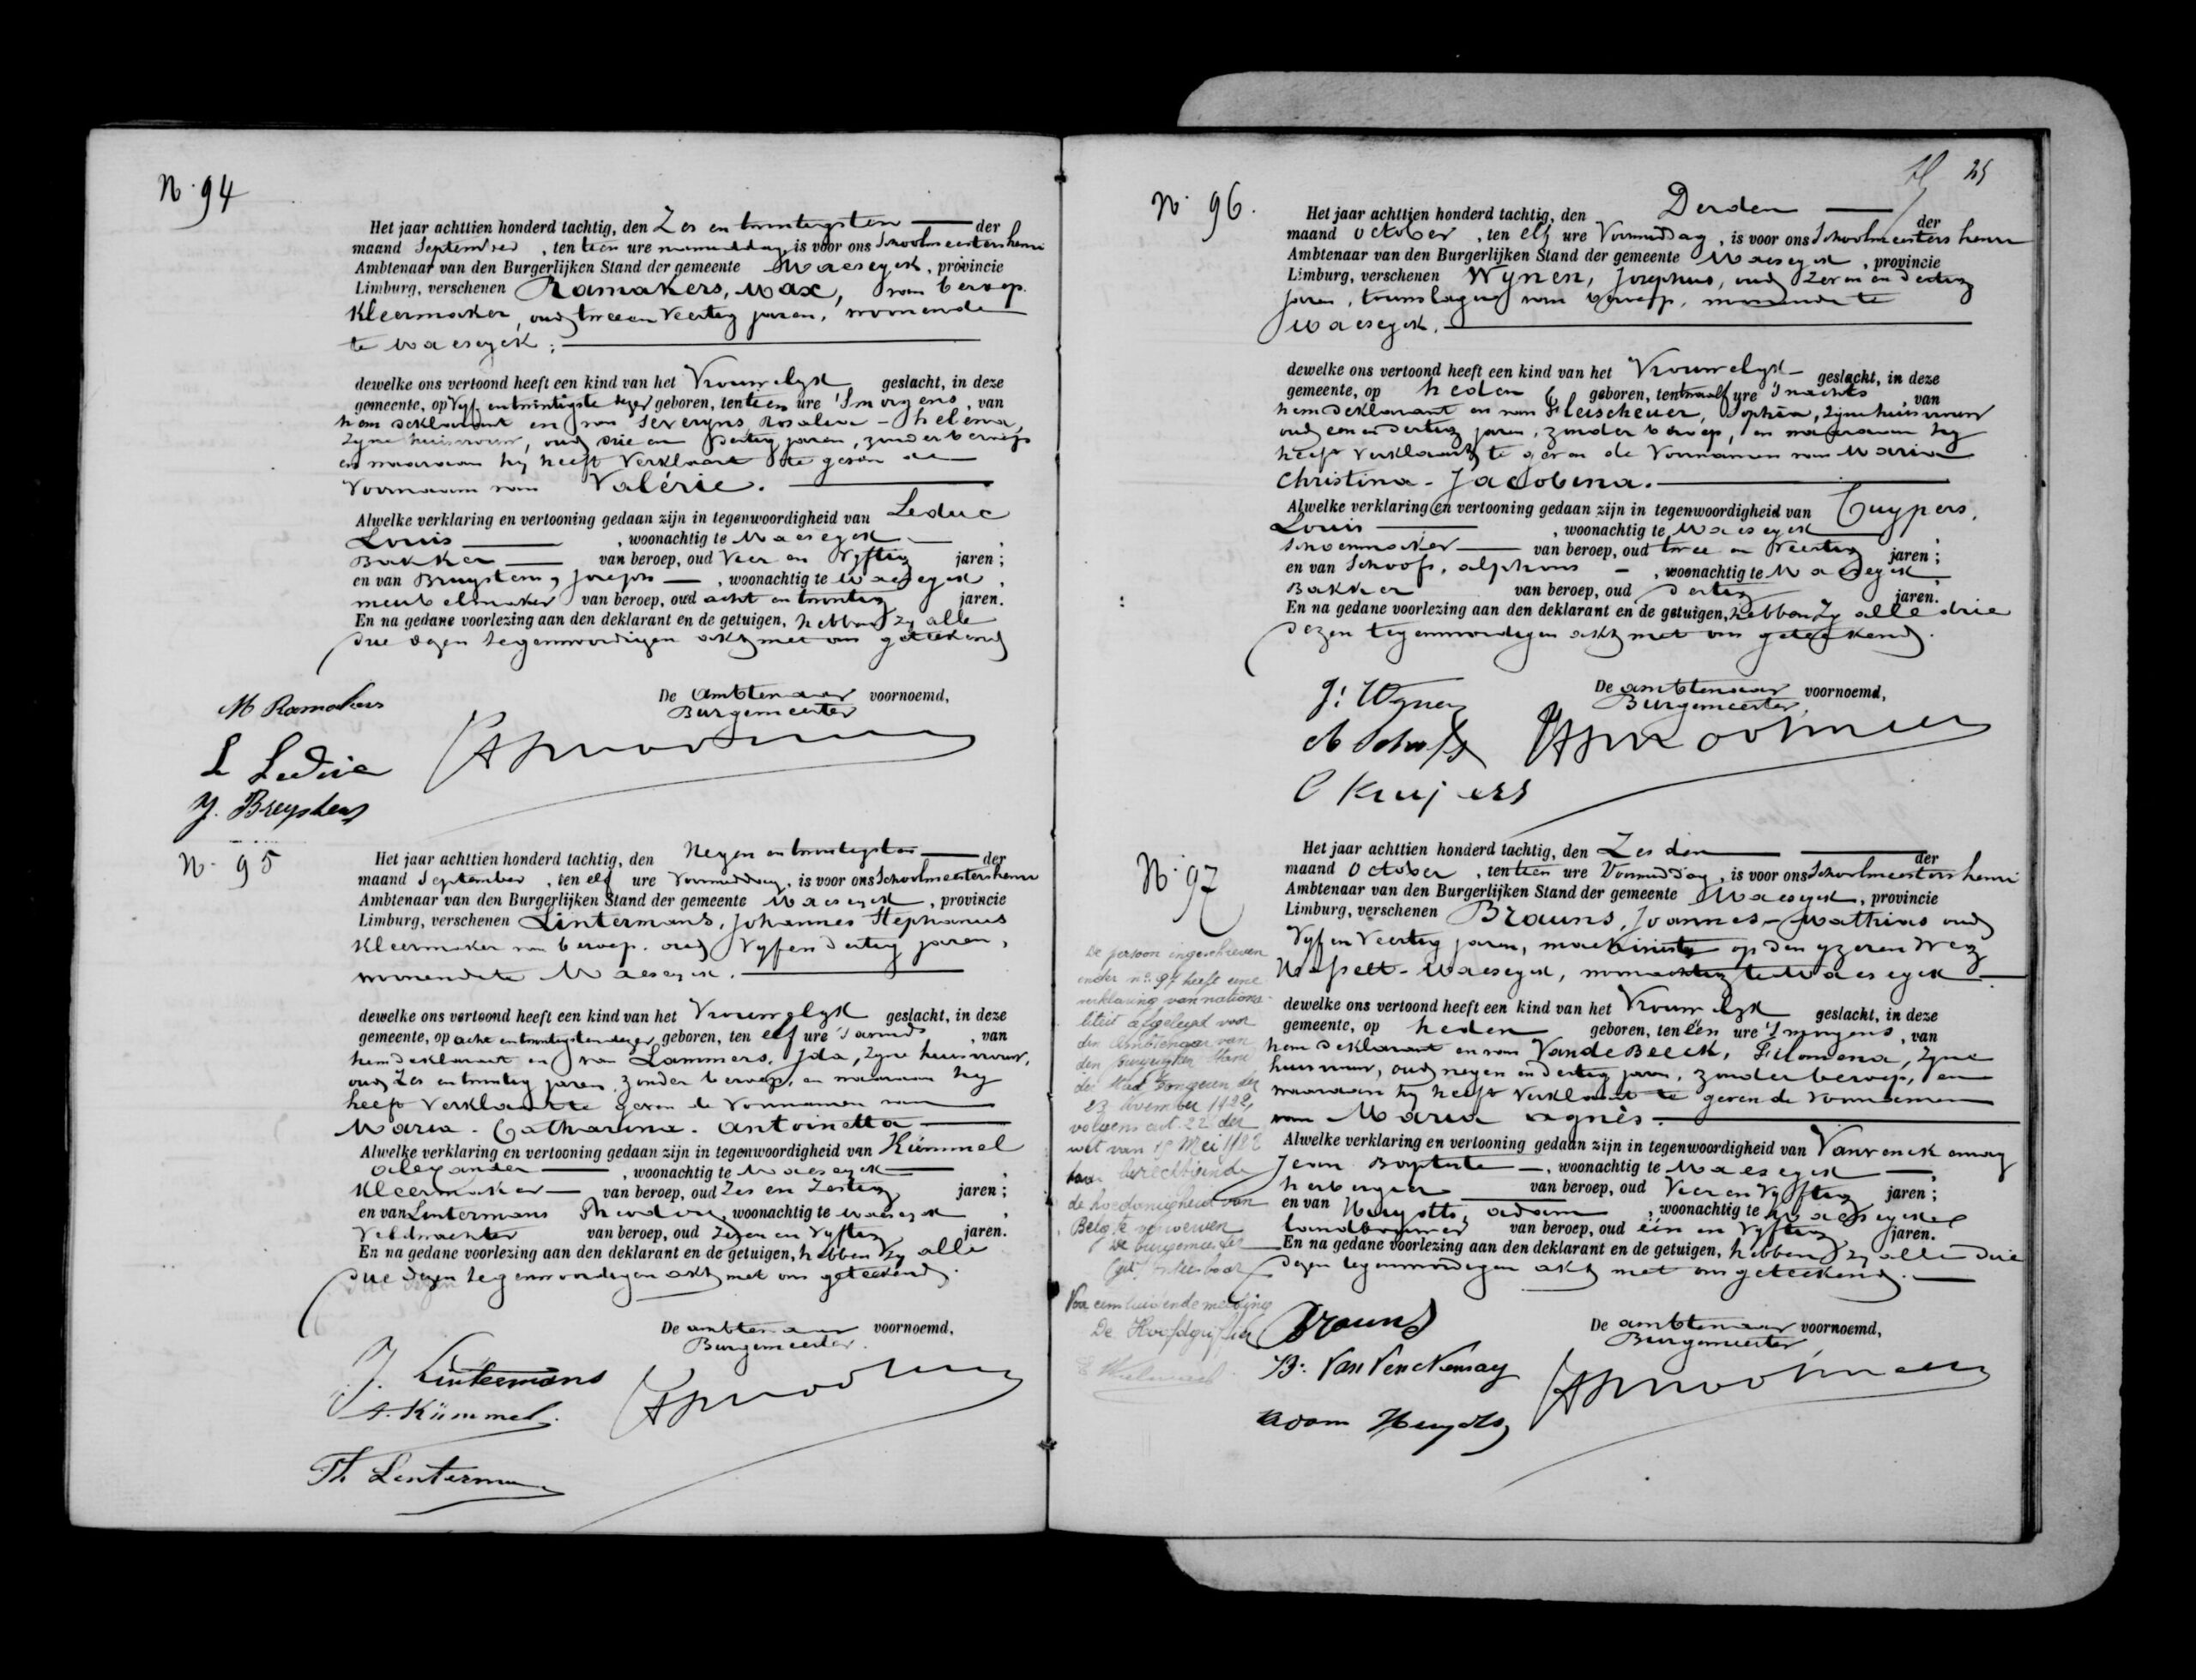 N. 94
Het jaar achttien honderd tachtig, den Zes en twintigsten der
maand September, ten tien ure namiddag, is voor ons Schoolmeesters henri
Ambtenaar van den Burgerlijken Stand der gemeente Maeseyck, provincie
Limburg, verschenen Ramakers, Max, van beroep
Kleermaker, oud twee en Veertig jaren, wonende
te Maeseyck;
dewelke ons vertoond heeft een kind van het Vrouwelyk geslacht, in deze
gemeente, op Vyf en twintigste dezer geboren, ten tien ure 's morgens, van
hem deklarant en van Severyns, Rosalia - Helena,
zyne huisvrouw, oud drie en dertig jaren, zonder beroep
en waaraan hy heeft Verklaart te geven de
Voornaam van Valérie.
Alwelke verklaring en vertooning gedaan zijn in tegenwoordigheid van Leduc
Louis, woonachtig te Maeseyck,
Bakker van beroep, oud Vier en Vyftig jaren;
en van Bruystens, Joseph, woonachtig te Maeseyck,
meubelmaker van beroep, oud acht en twintig jaren.
En na gedane voorlezing aan den deklarant en de getuigen, hebben zy alle
drie dezen tegenwoordigen akt met ons geteekend
De Ambtenaar voornoemd,
Burgemeester
M Ramakers
L Leduc
J. Breystens
N. 95
Het jaar achttien honderd tachtig, den Negen en twintigsten der
maand September, ten elf ure Voormiddag, is voor ons Schoolmeesters henri
Ambtenaar van den Burgerlijken Stand der gemeente Maeseyck, provincie
Limburg, verschenen Lintermans, Johannes Stephanus
Kleermaker van beroep, oud Vyf en dertig jaren,
wonende te Maeseyck.
dewelke ons vertoond heeft een kind van het Vrouwelyk geslacht, in deze
gemeente, op acht en twintigsten dezer geboren, ten elf ure 's avonds, van
hem deklarant en van Lammers, Ida, zyne huisvrouw,
oud Zes en twintig jaren, zonder beroep, en waaraan hy
heeft Verklaart te geven de Voornamen van
Maria. Catharina. Antoinetta
Alwelke verklaring en vertooning gedaan zijn in tegenwoordigheid van Kümmel
Alexander, woonachtig te Maeseyck,
Kleermaker van beroep, oud Zes en Zestig jaren;
en van Lintermans Theodor, woonachtig te Maeseyck,
Veldwachter van beroep, oud Zeven en Vyftig jaren.
En na gedane voorlezing aan den deklarant en de getuigen, hebben zy alle
drie dezen tegenwoordigen akt met ons geteekend.
De ambtenaar voornoemd,
Burgemeester.
J. Lintermans
A. Kümmel.
Th Linterman
25
N. 96.
Het jaar achttien honderd tachtig, den Derden der
maand October, ten elf ure Voormiddag, is voor ons Schoolmeesters henri
Ambtenaar van den Burgerlijken Stand der gemeente Maeseyck, provincie
Limburg, verschenen Wynen, Josephus, oud Zeven en dertig
jaren, touwslager van beroep, wonende te
Maeseyck.
dewelke ons vertoond heeft een kind van het Vrouwelyk geslacht, in deze
gemeente, op heden geboren, ten twaalf ure 's nachts, van
hem deklarant en van Fleischeuer, Sophia, zyne huisvrouw
oud een en dertig jaren, zonder beroep, en waaraan hy
heeft Verklaart te geven de Voornamen van Maria
Christina - Jacobina.
Alwelke verklaring en vertooning gedaan zijn in tegenwoordigheid van Cuypers,
Louis, woonachtig te Maeseyck,
schoenmaker van beroep, oud twee en Veertig jaren;
en van Schoofs, alphons, woonachtig te Maeseyck,
Bakker van beroep, oud dertig jaren.
En na gedane voorlezing aan den deklarant en de getuigen, hebben zy alle drie
dezen tegenwoordigen akt met ons geteekend.
De ambtenaar voornoemd,
Burgemeester,
J: Wynen
C Kuijpers
N. 97
Het jaar achttien honderd tachtig, den Zesden der
maand October, ten tien ure Voormiddag, is voor ons Schoolmeesters henri
Ambtenaar van den Burgerlijken Stand der gemeente Maeseyck, provincie
Limburg, verschenen Brouns, Joannes - Mathias oud
Vyf en Veertig jaren, machinist op den yzeren Weg
Hasselt - Maeseyck, woonachtig te Maeseyck
dewelke ons vertoond heeft een kind van het Vrouwelyk geslacht, in deze
gemeente, op heden geboren, ten één ure 's morgens, van
hem deklarant en van Van de Beeck, Filomena, zyne
huisvrouw, oud negen en dertig jaren, zonder beroep, en
waaraan hy heeft Verklaart te geven de Voornamen
van Maria agnès.
Alwelke verklaring en vertooning gedaan zijn in tegenwoordigheid van Vanvenckenray
Jean Baptiste, woonachtig te Maeseyck,
herbergier van beroep, oud Vier en Vyftig jaren;
en van Huydts, adam, woonachtig te Maeseyck
landbouwer van beroep, oud één en Vyftig jaren.
En na gedane voorlezing aan den deklarant en de getuigen, hebben zy alle drie
dezen tegenwoordigen akt met ons geteekend.
De ambtenaar voornoemd,
Burgemeester
Brouns
B. Van Venckenray
Adam Huydts
De persoon ingeschreven
onder n° 97 heeft eene
verklaring van nationa-
liteit afgelegd voor
den Ambtenaar van
den burgerlijken Stand
der Stad Tongeren den
23 November 1922,
volgens art. 22 der
wet van 15 Mei 1922
haar berechtigende
de hoedanigheid van
Belg te verwerven
De burgemeester
Voor eensluidende melding
De Hoofdgriffier